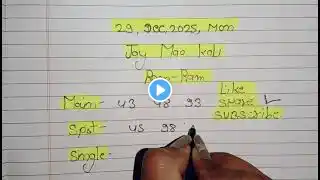 29, DEC, 2025, Mon
Joy Maa Kali
Ram-Ram
Like
Main- 43 48 93 SHARE
SUBSCRIBE
Spot- 45 98
Single-